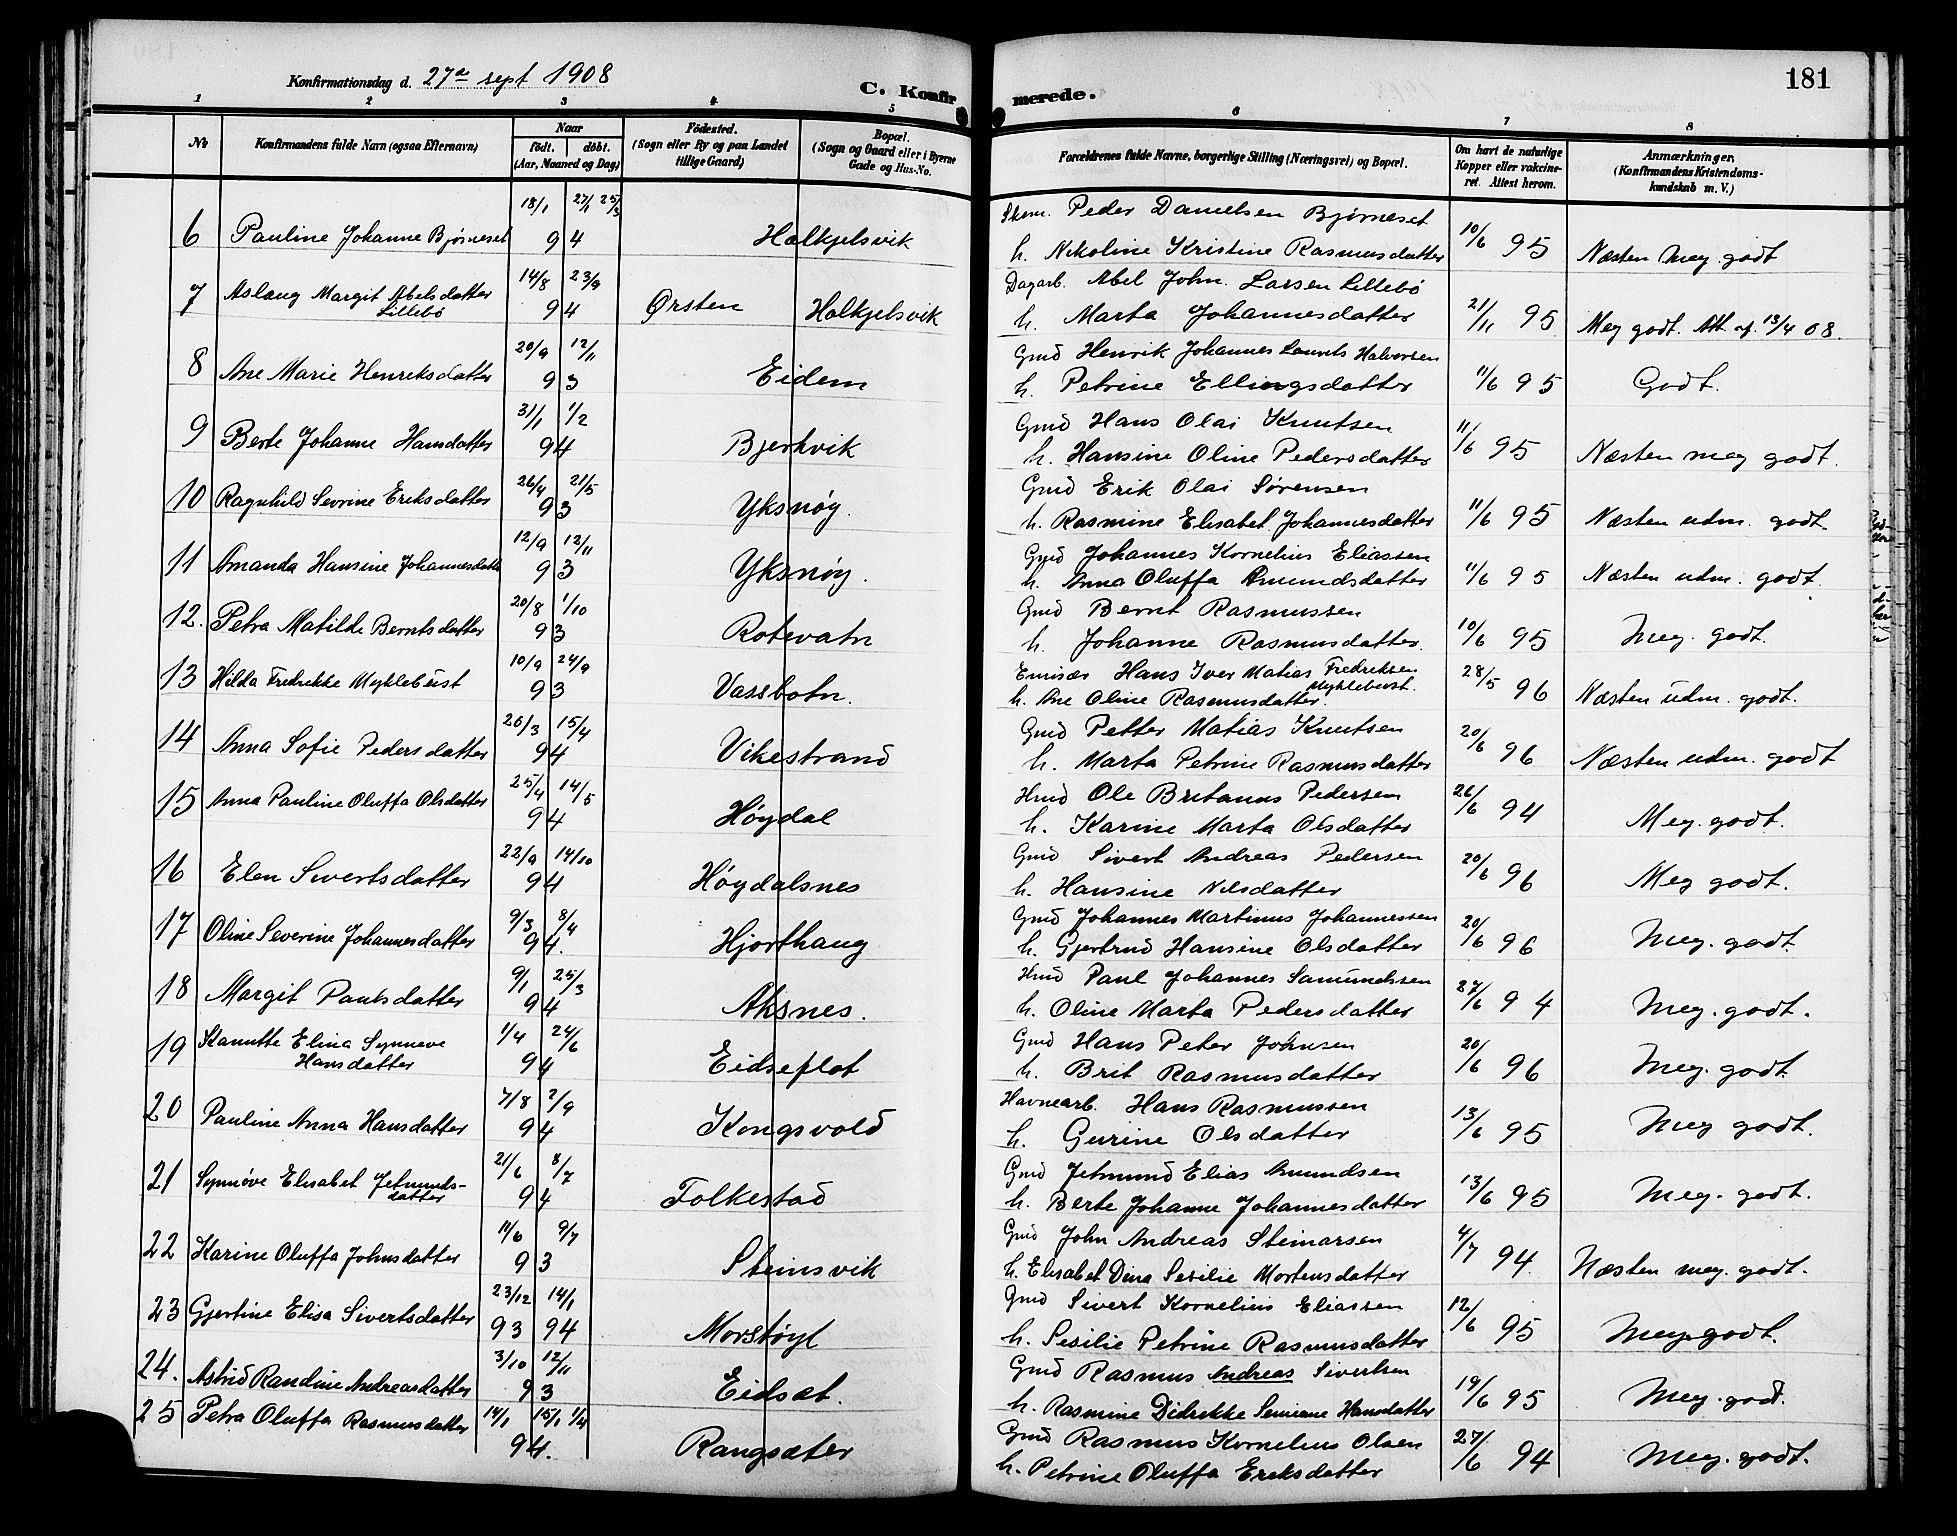 181
Konfirmationsdag d. 27de sept 1908
C. Konfirmerede.
1 2 3 4 5 6 7 8
No
Konfirmandens fulde Navn (ogsaa Efternavn)
Naar
födt. döbt.
(Aar, Maaned og Dag)
Födested.
(Sogn eller By og paa Landet
tillige Gaard)
Bopæl.
(Sogn og Gaard eller i Byerne
Gade og Hus-No.
Forældrenes fulde Navne, borgerlige Stilling (Næringsvei) og Bopæl.
Om havt de naturlige
Kopper eller vakcine-
ret. Attest herom.
Anmærkninger,
(Konfirmandens Kristendoms-
kundskab m. V.)
18/1 27/1 25/3 Skom. Peder Danielsen Bjørneset
6 Pauline Johanne Bjørneset 94 Halkjelsvik h. Nikoline Kristine Rasmusdatter 10/6 95 Næsten meg. godt
14/8 23/9 Dagarb. Abel John. Larsen Lillebø
7 Aslaug Margit Abelsdatter Lillebø 94 Ørsten Halkjelsvik h. Marta Johannesdatter 21/11 95 Meg godt. Att. af. 13/4 08.
20/9 12/11 Gmd Henrik Johannes Laurits Halvorsen
8 Ane Marie Henriksdatter 93 Eidem h. Petrine Ellingsdatter 11/6 95 Godt.
31/1 1/2 Gmd Hans Olai Knutsen
9 Berte Johanne Hansdatter 94 Bjerkvik h. Hansine Oline Pedersdatter 11/6 95 Næsten meg godt.
26/4 21/5 Gmd Erik Olai Sørensen
10 Ragnhild Sevrine Eriksdatter 93 Yksnøy. h. Rasmine Elisabet Johannesdatter 11/6 95 Næsten udm. godt.
12/9 12/11 Gmd Johannes Kornelius Eliassen
11 Amanda Hansine Johannesdatter 93 Yksnøy. h. Anna Oluffa Amundsdatter 11/6 95 Næsten udm. godt.
20/8 1/10 Gmd Bernt Rasmussen
12. Petra Matilde Berntsdatter 93 Rotevatn h. Johanne Rasmusdatter. 10/6 95 Meg. godt.
10/9 24/9 Emisær Hans Iver Matias Fredriksen Myklebust.
13 Hilda Fredrikke Myklebust 93 Vassbotn. h. Ane Oline Rasmusdatter. 28/5 96 Næsten udm. godt.
26/3 15/4 Gmd Petter Matias Knutsen
14 Anna Sofie Pedersdatter 94 Vikestrand h. Marta Petrine Rasmusdatter 20/6 96 Næsten udm. godt
25/4 14/5 Hmd Ole Britanus Pedersen
15 Anna Pauline Oluffa Olsdatter 94 Høydal h. Karine Marta Olsdatter 26/6 94 Meg. godt.
22/9 14/10 Gmd Sivert Andreas Pedersen
16 Elen Sivertsdatter 94 Høydalsnes h. Hansine Nilsdatter 20/6 96 Meg godt.
9/3 8/4 Gmd Johannes Martinus Johannessen
17 Oline Severine Johannesdatter 94. Hjorthaug h. Gjertrud Hansine Olsdatter 20/6 96 Meg. godt.
9/1 25/3 Hmd Paul Johannes Samundsen
18 Margit Paulsdatter 94 Aksnes. h. Oline Marta Pedersdatter 27/6 94 Meg. godt.
1/4 24/6 Gmd Hans Peter Johnsen
19 Kanutte Elina Synneve Hansdatter 94 Eidseflot h. Brit Rasmusdatter 20/6 96 Meg. godt.
7/8 2/9 Havnearb. Hans Rasmussen
20 Pauline Anna Hansdatter 94 Kongsvold h. Gurine Olsdatter 13/6 95 Meg godt.
21/6 8/7 Gmd Jetmund Elias Amundsen
21 Synnøve Elisabet Jetmunds-datter 94 Folkestad h. Berte Johanne Johannesdatter 13/6 95 Meg. godt.
11/6 9/7 Gmd John Andreas Steinarsen
22 Karine Oluffa Johnsdatter 93 Steinsvik h. Elisabet Dina Sesilie Mortensdatter 4/7 94. Næsten meg. godt.
23/12 14/1 Gmd Sivert Kornelius Eliassen
23 Gjertine Elisa Sivertsdatter 93 94 Morstøyl h. Sesilie Petrine Rasmusdatter 12/6 95 Meg. godt.
3/10 12/11 Gmd Rasmus Andreas Sivertsen
24. Astrid Randine Andreasdatter 93 Eidsæt. h. Rasmine Didrikke Hansdatter 19/6 95 Meg. godt.
14/1 15/1 1/4 Gmd Rasmus Kornelius Olsen
25 Petra Oluffa Rasmusdatter 94. Rangsæter h. Petrine Oluffa Eriksdatter 27/6 94 Meg. godt.